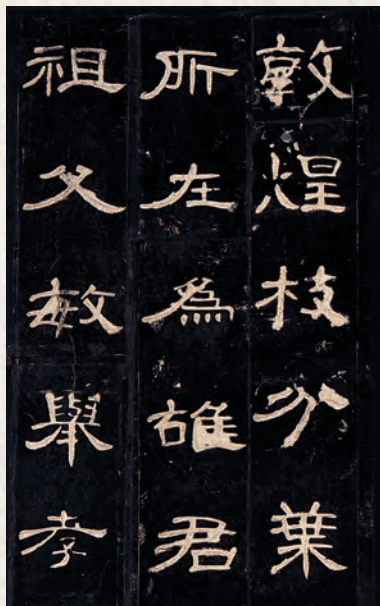 敦煌枝分葉
所在為雄君
祖父敏舉孝